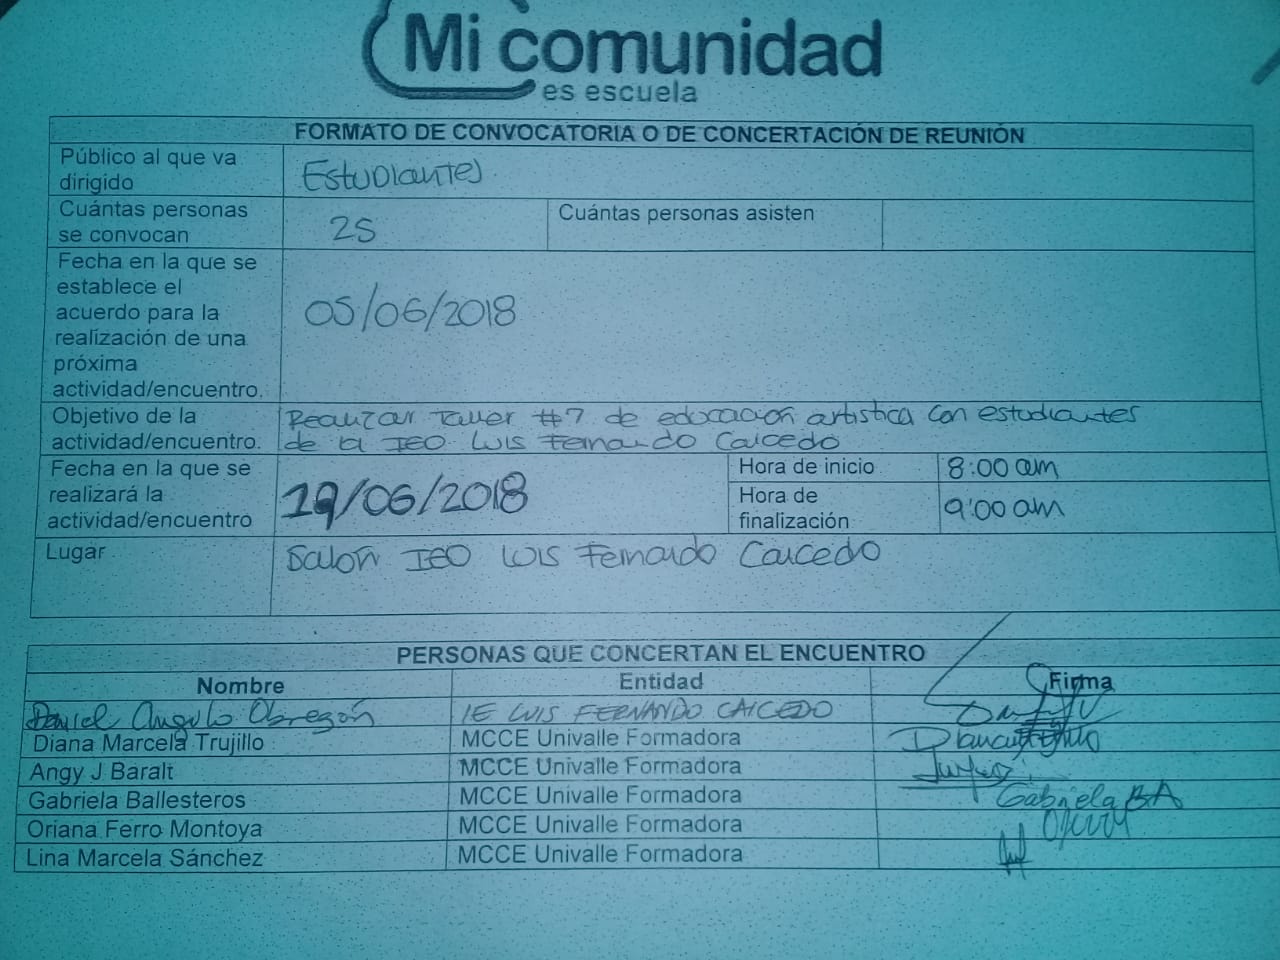 Mi comunidad
es escuela
FORMATO DE CONVOCATORIA O DE CONCERTACIÓN DE REUNIÓN
Público al que va
dirigido
Estudiantes
Cuántas personas
se convocan
25
Cuántas personas asisten
Fecha en la que se
establece el
acuerdo para la
realización de una
próxima
actividad/encuentro.
05/06/2018
Objetivo de la
actividad/encuentro.
Realizar Taller #7 de educación artistica con estudiantes
de la IEO Luis Fernando Caicedo
Fecha en la que se
realizará la
actividad/encuentro
19/06/2018
Hora de inicio
8:00 am
Hora de
finalización
9:00 am
Lugar
Salón IEO Luis Fernando Caicedo
PERSONAS QUE CONCERTAN EL ENCUENTRO
Nombre Entidad Firma
Daniel Angulo Obregón IE LUIS FERNANDO CAICEDO
Diana Marcela Trujillo MCCE Univalle Formadora
Angy J Baralt MCCE Univalle Formadora
Gabriela Ballesteros MCCE Univalle Formadora Gabriela BA
Oriana Ferro Montoya MCCE Univalle Formadora
Lina Marcela Sánchez MCCE Univalle Formadora